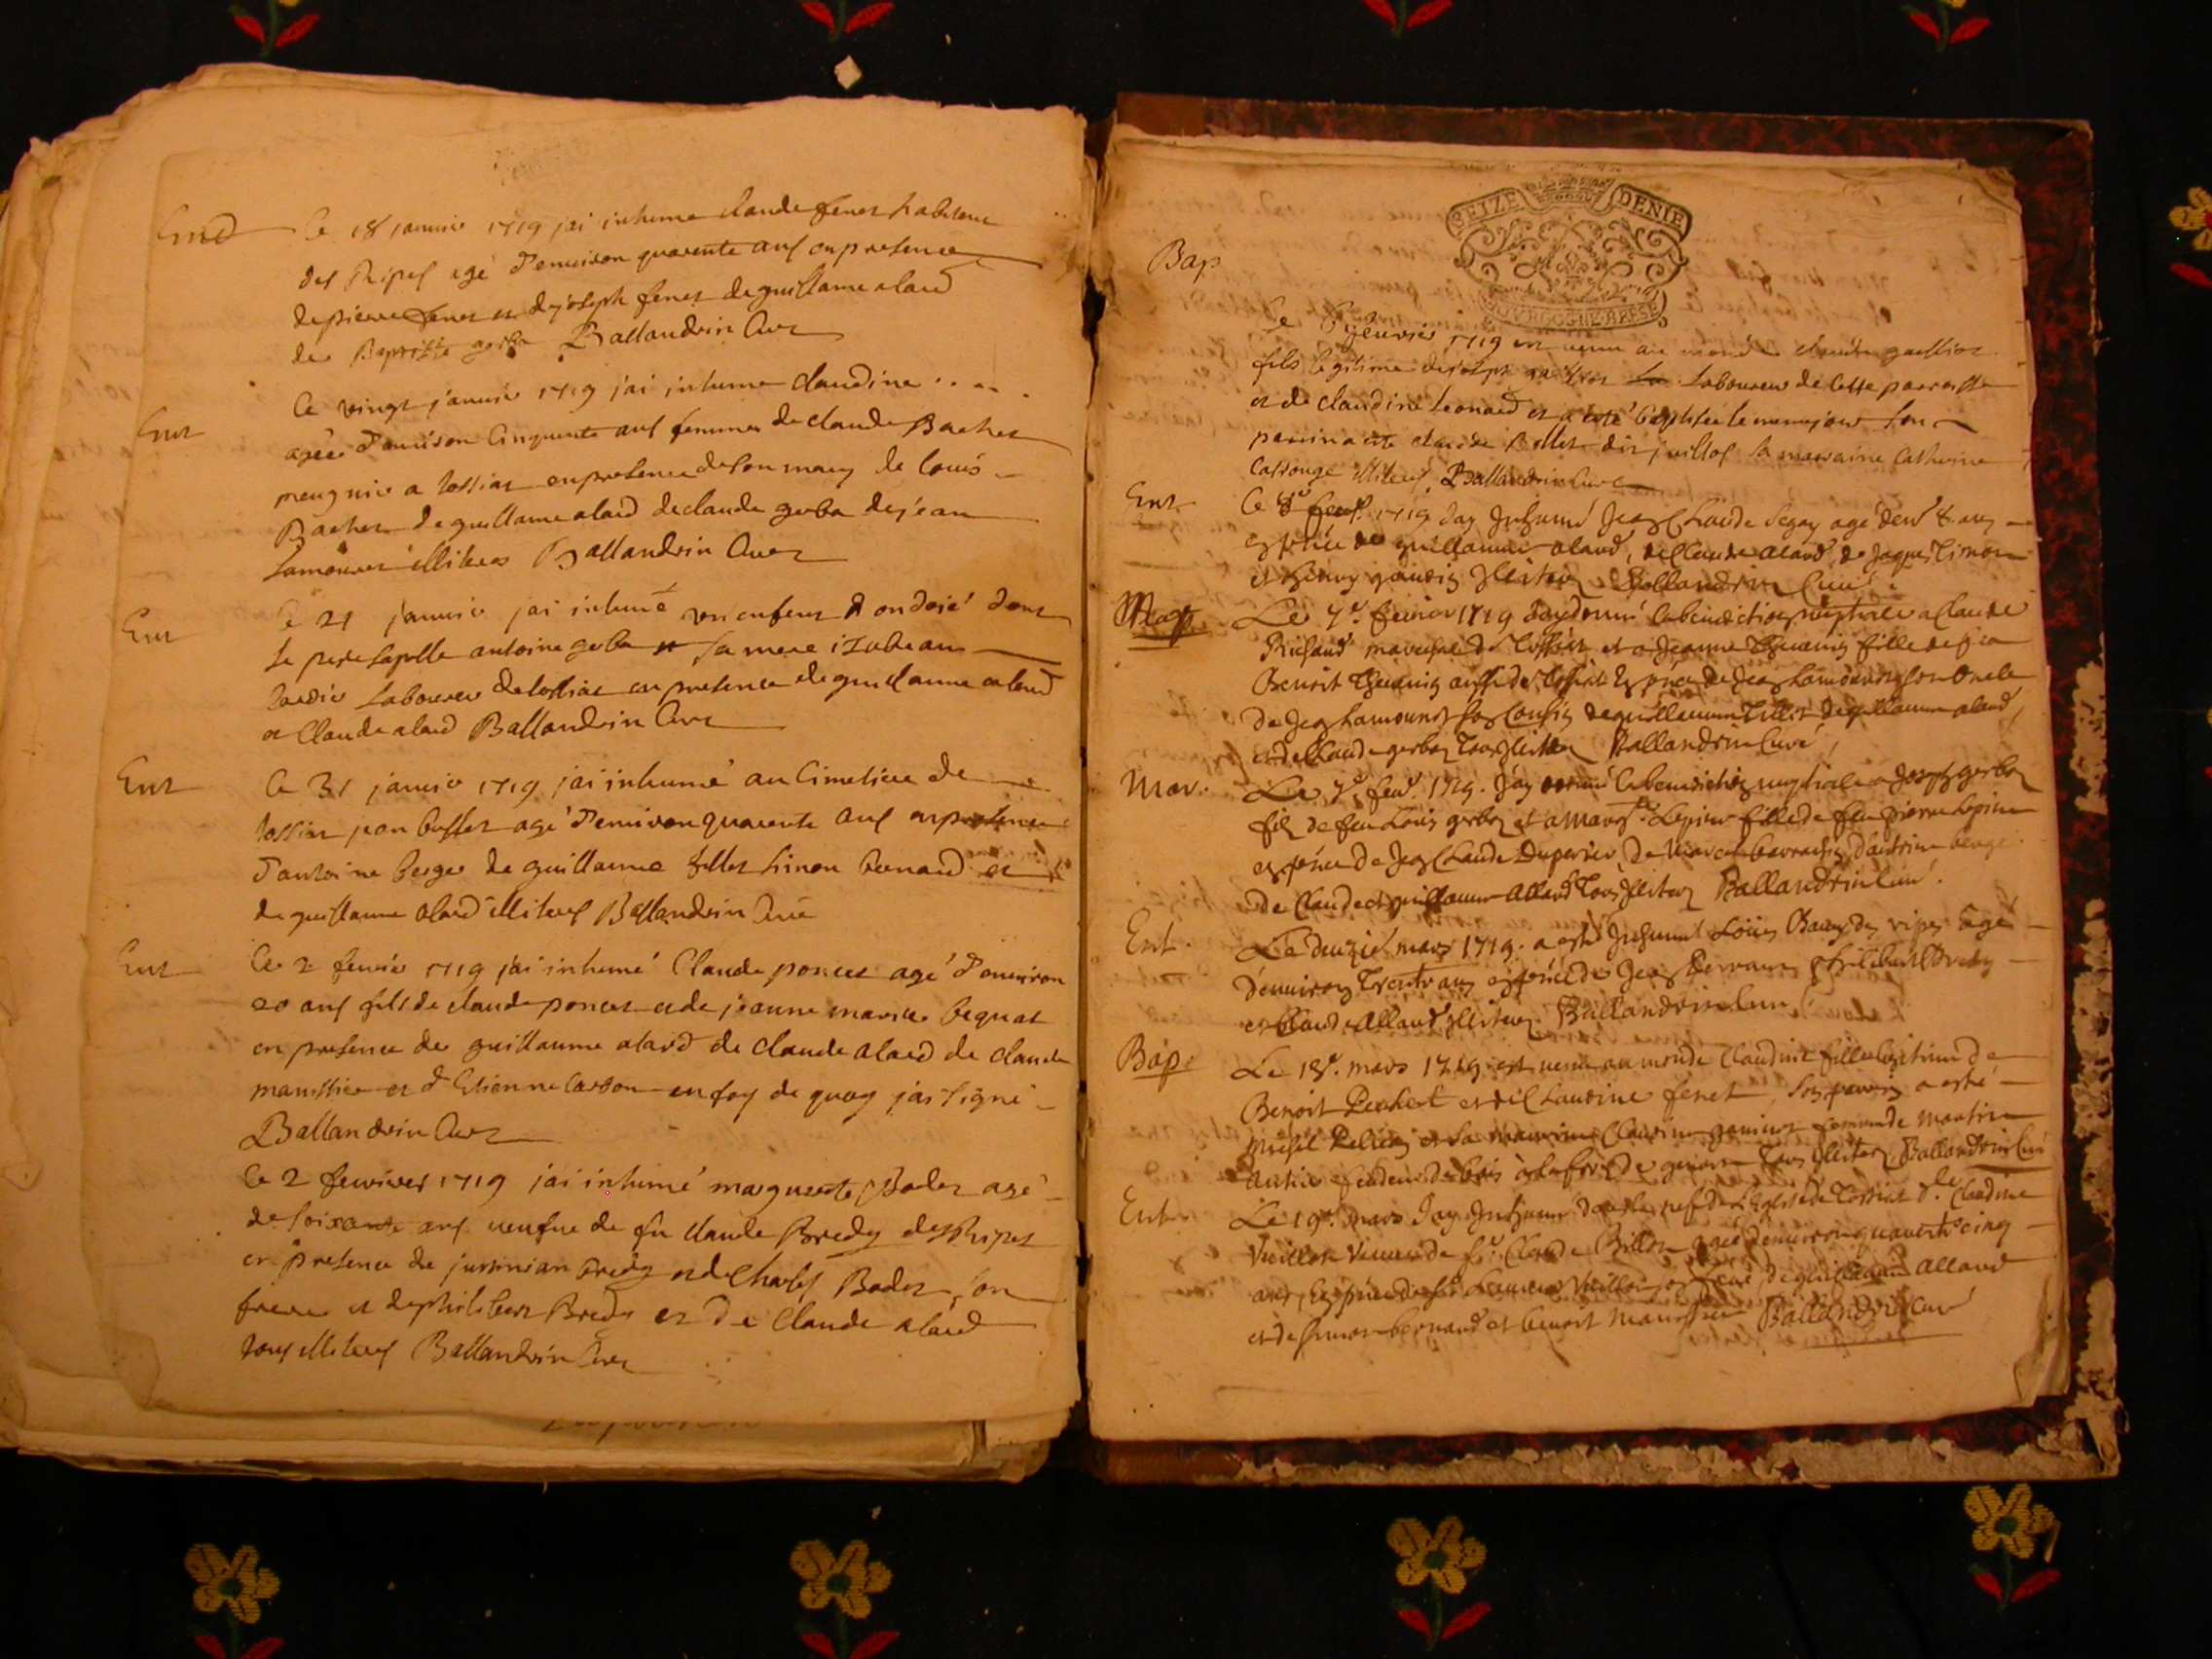 Ent
Ce 18 janvier 1719 jai inhume claude fenet habitant
des Ripes agé d'environ quarente ans en presence
de pierre fenet et de joseph fenet de guillame alard
de Baptiste gerba Ballandrin Curé
Ent
Ce vingt janvier 1719 j'ai inhume claudine ....
agée d'environ Cinquente ans femme de claude Bachet
meugnier a tossiat en presence de son mary de louis
Bachet de guillame alard de claude gerba de jean
Lamouret illiteres Ballandrin Curé
Ent
Ce 21 janvier jai inhumé un enfent ondoié dont
le pere sapelle antoine gerba et sa mere izabeau
tardis Laboureur de tossiat en presence de guillaume alard
et Claude alard Ballandrin Curé
Ent
Ce 31 janvier 1719 jai inhumé au Cimetiere de
tossiat jean buffet agé d'environ quarente ans en presence
d'antoine berger de guillaume tillet simon bernard et
de guillaume alard illiteres Ballandrin Curé
Ent
Ce 2 fevrier 1719 jai inhumé Claude poncet agé d'environ
20 ans fils de claude poncet et de jeanne marie bequat
en presence de guillaume alard de claude alard de claude
manissier et d'Etienne Carbon en foy de quoy jai signé
Ballandrin Curé
Ce 2 fevrier 1719 jai inhumé marguerite Bodet agé
de soixante ans veufve de fu claude Bredy des Ripes
en presence de justinian Bredy et de Charles Bodet son
frere et de philibert Bredy et de Claude alard
tous illiteres Ballandrin Curé
SEIZE DENIE
BOURGOGNE BRESSE
Bap
Le fevrier 1719 est venu au monde claude
fils legitime de joseph Laboureur de Cette parroisse
et de claudine leonard et a eté baptisé le meme jour son
parrin a eté claude Bollet dit juillof sa marraine Catherine
illiteres Ballandrin Curé
Ent
Ce 8e fevr. 1719 Jay Inhumé Jean Claude Segay agé den. 8 ans
en présce de guillaume alard, de Claude alard, de Jaques Timon
et henry gaudin Illiteres Ballandrin Curé
Mar
Le 7e. fevrier 1719 Jay donné la benediction nuptiale a Claude
Richard marechal de Tossiat et a Jeanne Thevenin fille de feu
Benoit Thevenin aussi de Tossiat En présce de Jean Lamouret son Oncle
de Jean Lamouret son Cousin de guillaume Tillet de guillaume alard,
et de Claude gerba Tous Illiteres Ballandrin Curé,
Mar.
Le 7e. fevr. 1719. Jay donné la benediction nuptiale a Joseph gerba
fils de feu Louis gerba et a margte. Lepine fille de feu pierre Lepine
en présce de Jean Claude Duperier, De d'antoine berge
De Claude et guillaume allard Tous Illiteres Ballandrin Curé.
Ent.
Le douzie. mars 1719. a esté Inhumé Loüis des ripes agé
d'environ Trente ans en présce de Jean philibert Bredy
et Claude Allard Illiteres Ballandrin Curé
Bap.
Le 18e. mars 1719 est venue au monde Claudine fille legitime de
Benoit Pechet et de Claudine fenet, Son parrin a esté
Michel Pelican et Sa marraine Claudine femme de martin
Tous Illiteres Ballandrin Curé
Ent.
Le 19e. mars Jay Inhumé dans la nef de l'Eglise de Tossiat dlle. Claudine
Vieillon Veuve de Sr. Claude Billon agée d'environ quarente cinq
ans, En présce de Sr. Laurent Vieillon de guillaume alard
et de simon bernard et benoit manissier Ballandrin Curé